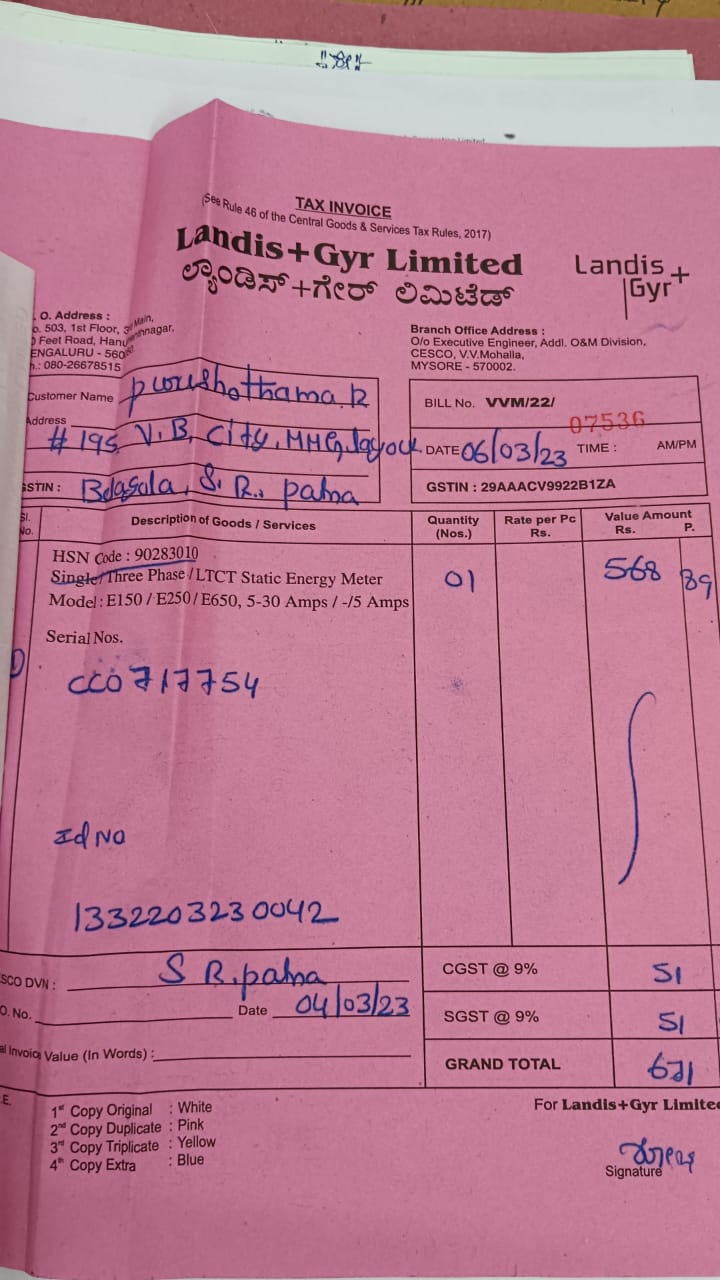 TAX INVOICE
(See Rule 46 of the Central Goods & Services Tax Rules, 2017)
Landis+Gyr Limited
ಲ್ಯಾಂಡಿಸ್+ಗೇರ್ ಲಿಮಿಟೆಡ್
Landis+
Gyr
O. Address :
o. 503, 1st Floor, Main,
Feet Road,
ENGALURU - 560
.: 080-26678515
Branch Office Address :
O/o Executive Engineer, Addl. O&M Division,
CESCO, V.V.Mohalla,
MYSORE - 570002.
Customer Name Purushothama.R
Address # 195, V.B. City, MMG layout
GSTIN : S.R. patna
BILL No. VVM/22/ 07536
DATE 06/03/23 TIME : AM/PM
GSTIN : 29AAACV9922B1ZA
Sl. No. Description of Goods / Services Quantity (Nos.) Rate per Pc Rs. Value Amount Rs. P.
HSN Code : 90283010
Single/Three Phase / LTCT Static Energy Meter 01 568 89
Model : E150 / E250 / E650, 5-30 Amps / -/5 Amps
Serial Nos.
CC0717754
Id No
1332203230042
SCO DVN : S R. patna
O. No. Date 04/03/23
al Invoice Value (In Words) :
CGST @ 9% 51
SGST @ 9% 51
GRAND TOTAL 671
E.
1st Copy Original : White
2nd Copy Duplicate : Pink
3rd Copy Triplicate : Yellow
4th Copy Extra : Blue
For Landis+Gyr Limite
Signature